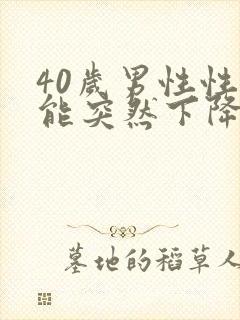 40歲男性性
能突然下降
墓地的稻草人